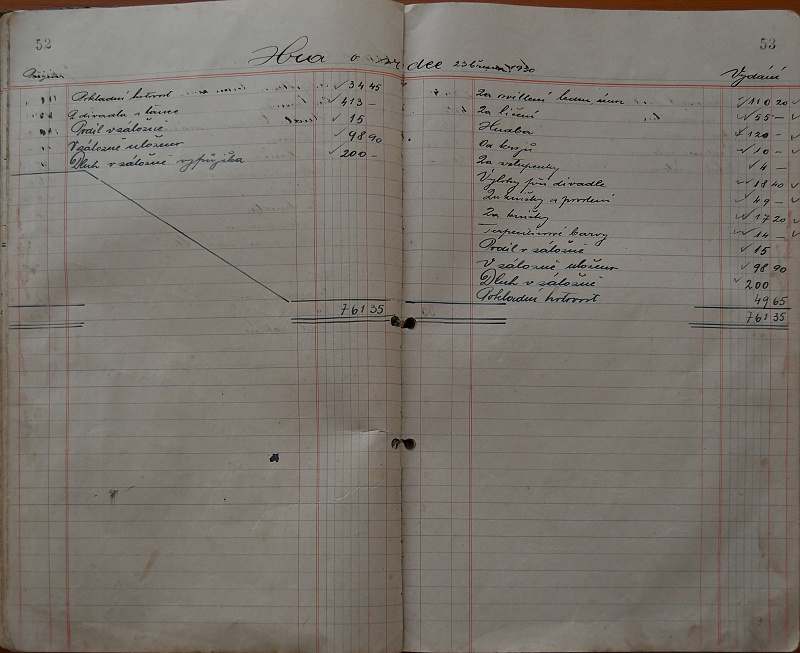 52
53
Hra o srdce 23 března 1930
Vydání
Pokladní hotovost 34 45
Z divadla a tance 413 —
Podíl v záložně 15
V záložně uloženo 98 90
Dluh v záložně výpůjčka 200 —
761 35
Za svícení leden únor 110 20
Za líčení 55 —
Hudba 120 —
10 —
Za vstupenky 4 —
Výlohy při divadle 18 40
49 —
Za knížky 17 20
barvy 14 —
Podíl v záložně 15
V záložně uloženo 98 90
Dluh v záložně 200
Pokladní hotovost 49 65
761 35